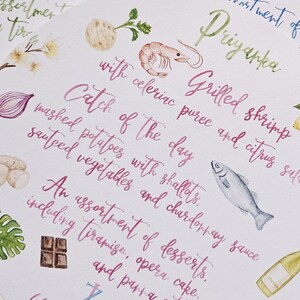 assortment of
tira
assortment of
Priyanka
Grilled shrimp
with celeriac puree and citrus
Catch of the day
mashed potatoes with shallots,
sauteed vegetables and chardonnay sauce
An assortment of desserts,
including tiramisu, opera cake,
and panna